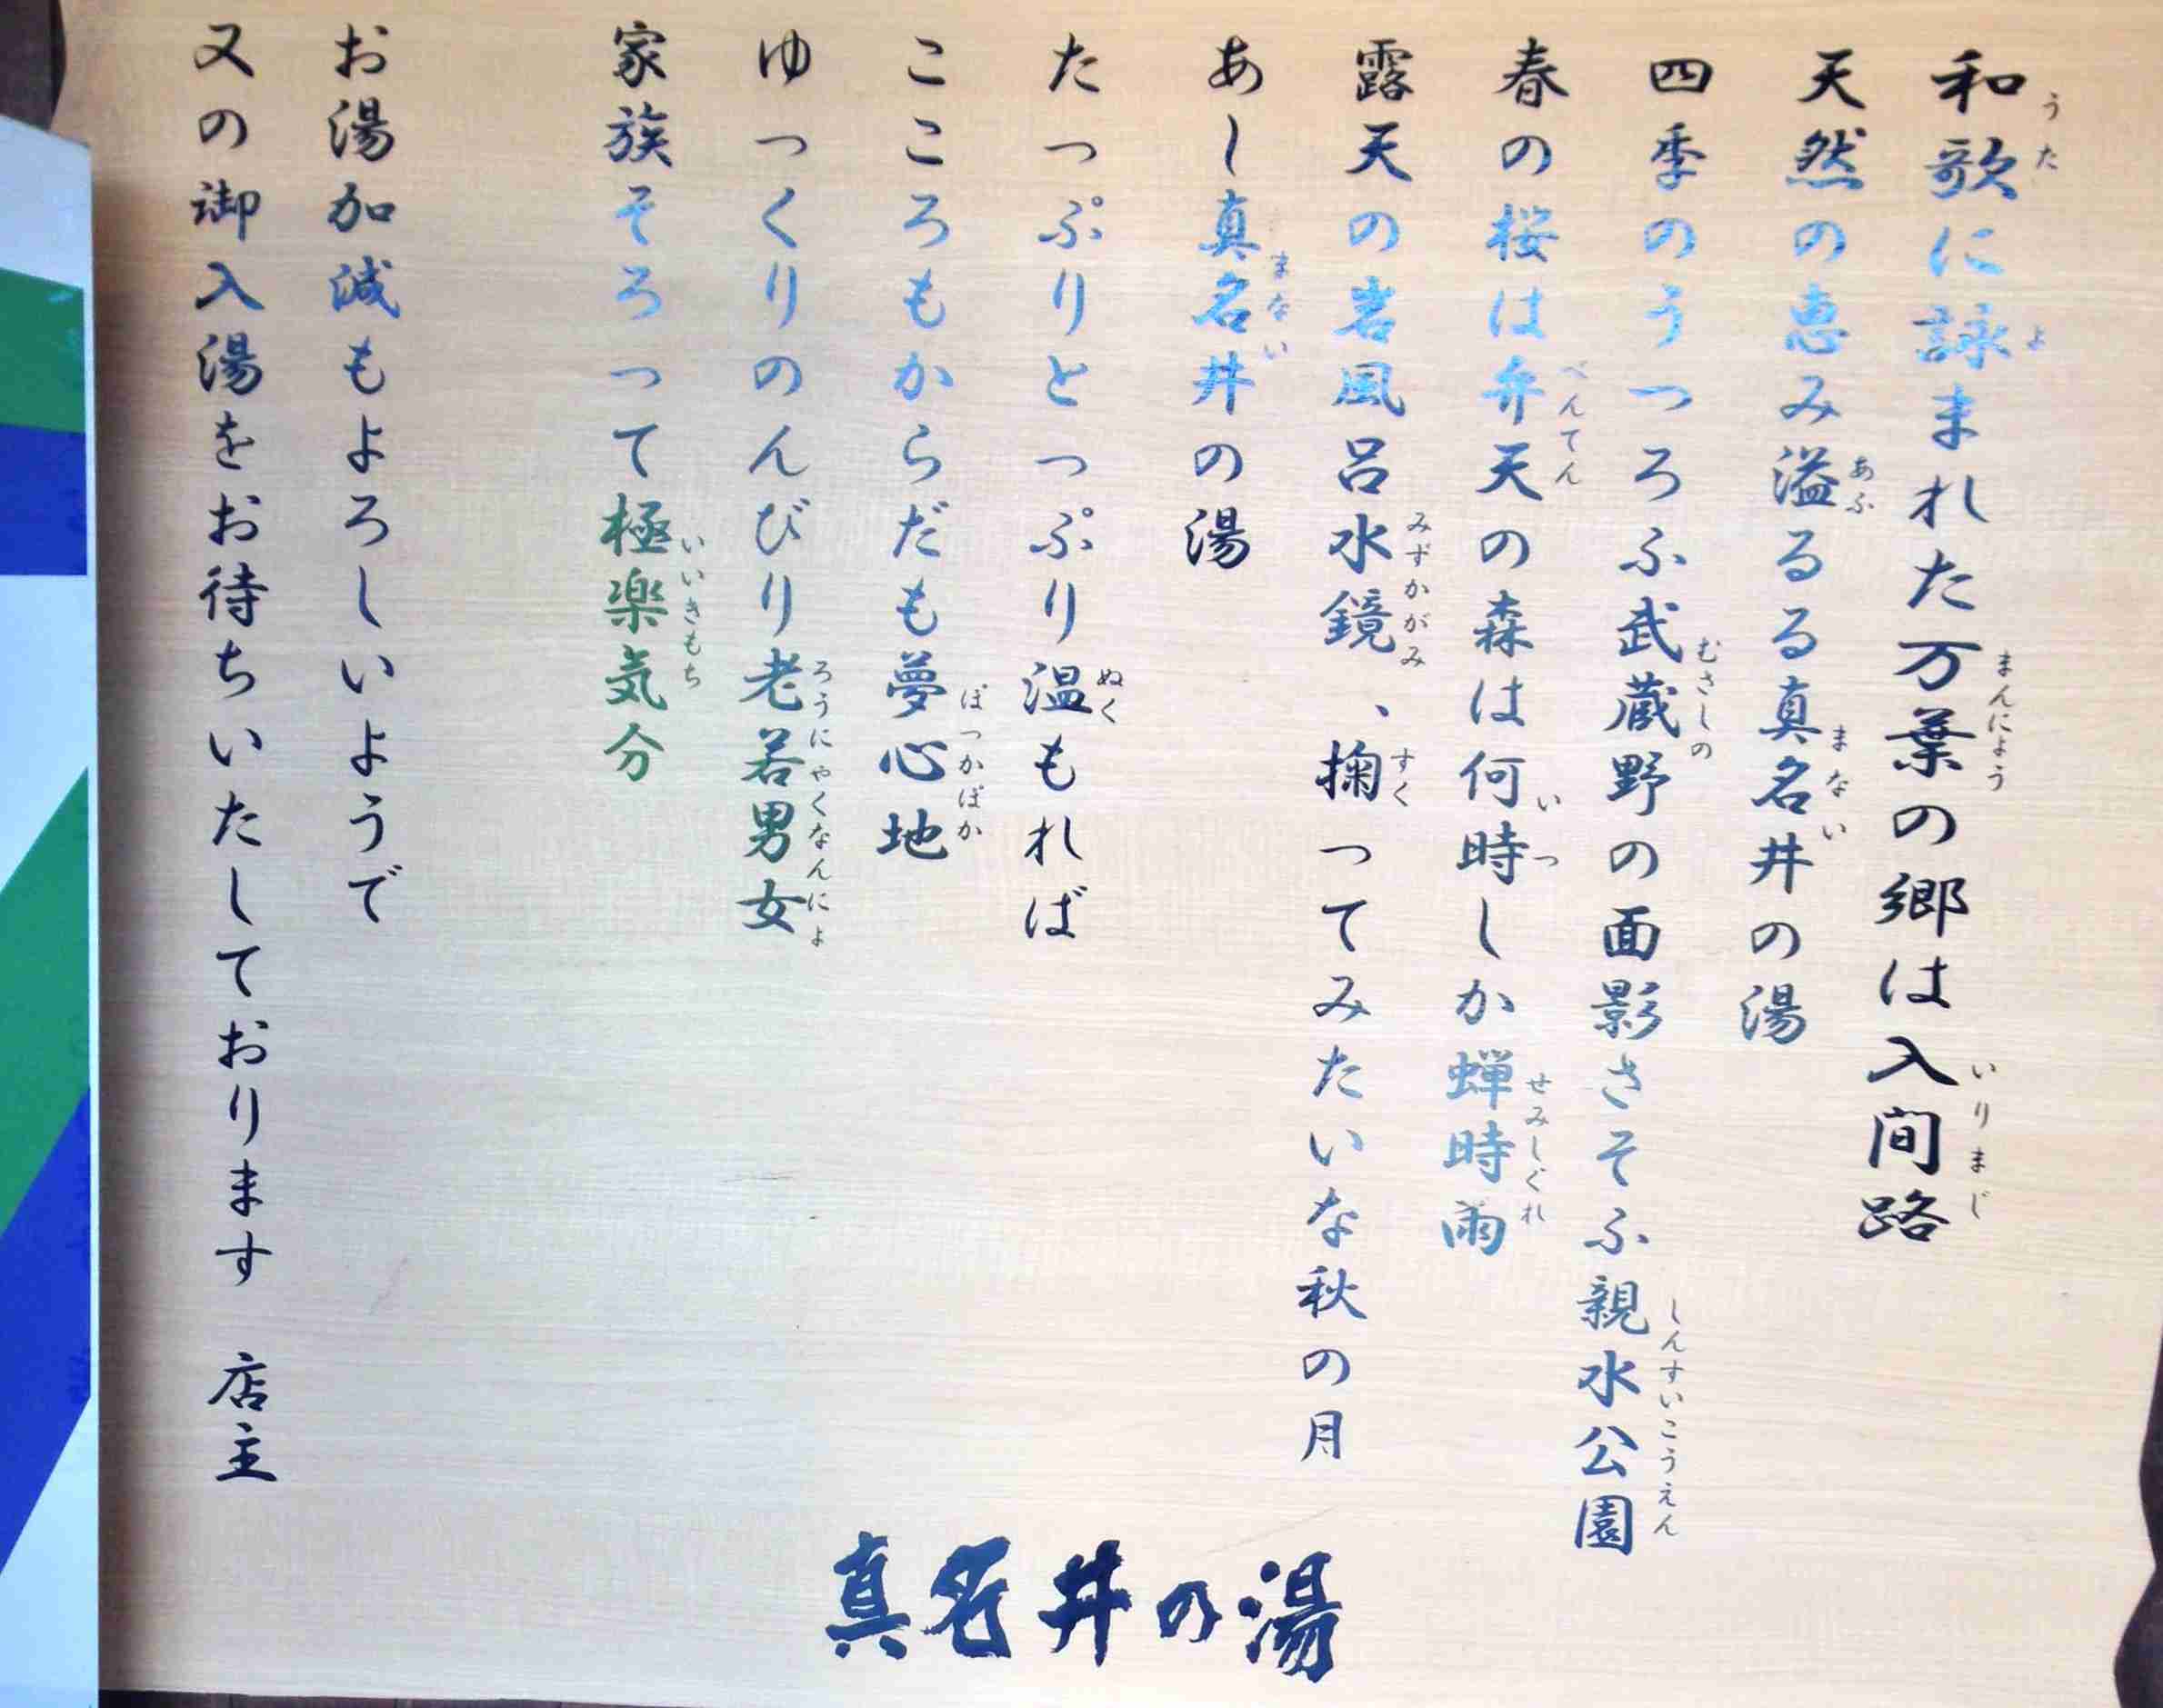 和歌に詠まれた万葉の郷は入間路
天然の恵み溢るる真名井の湯
四季のうつろふ武蔵野の面影さそふ親水公園
春の桜は弁天の森は何時しか蝉時雨
露天の岩風呂水鏡、掬ってみたいな秋の月
あし真名井の湯
たっぷりとっぷり温もれば
こころもからだも夢心地
ゆっくりのんびり老若男女
家族そろって極楽気分
お湯加減もよろしいようで
又の御入湯をお待ちいたしております 店主
真名井の湯